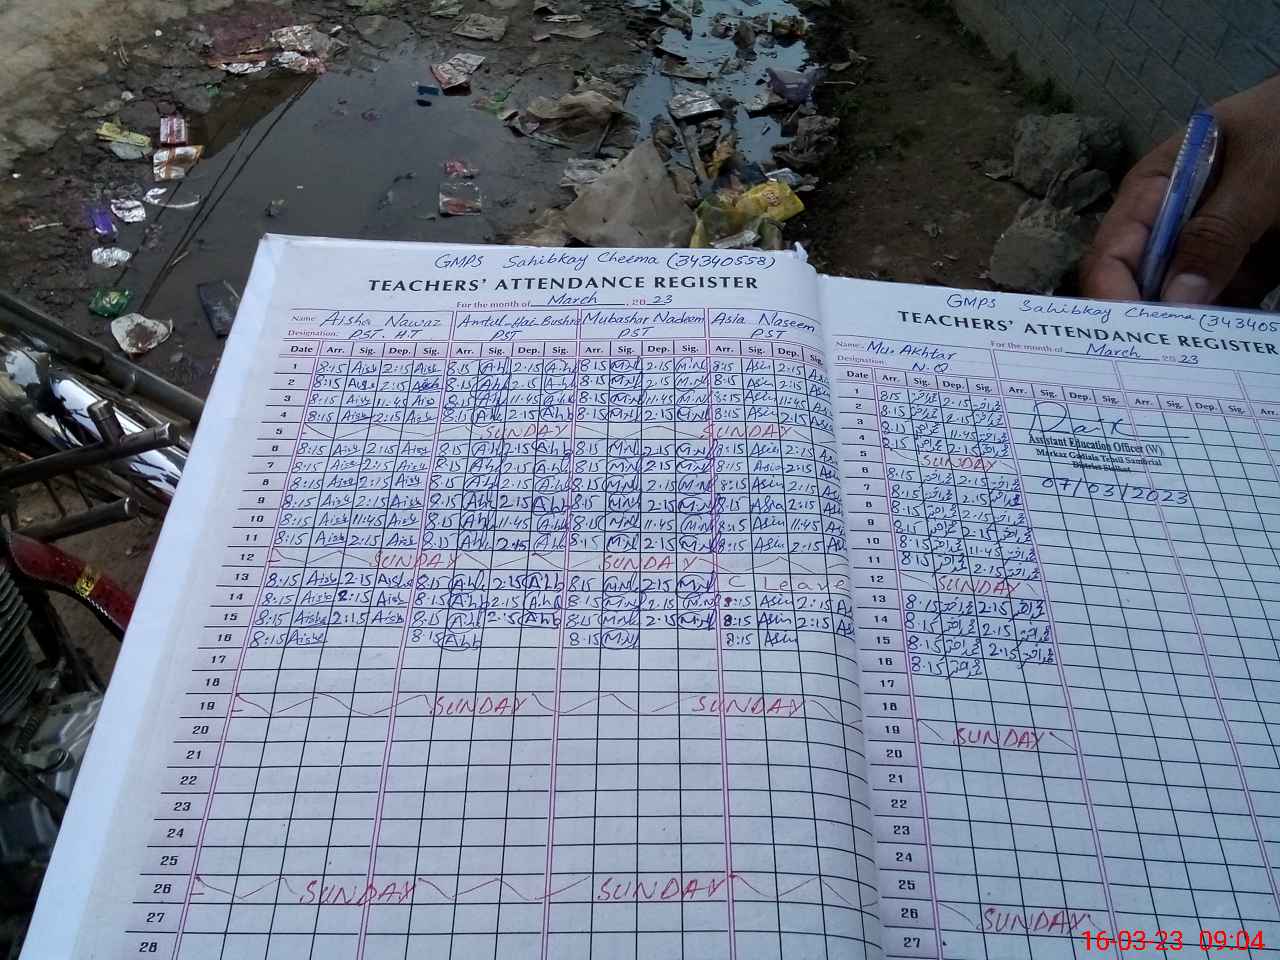 GMPS Sahibkay Cheema (34340558)
TEACHERS' ATTENDANCE REGISTER
For the month of March, 2023
Name Aisha Nawaz Amtul-Hai-Bushra Mubashar Nadeem Asia Naseem
Designation: PST-H.T PST PST PST
Date Arr. Sig. Dep. Sig. Arr. Sig. Dep. Sig. Arr. Sig. Dep. Sig. Arr. Sig. Dep. Sig.
1 8:15 Aish 2:15 Aish 8.15 A.h 2.15 A.h 8.15 M.N 2.15 M.N 8:15 Asia 2:15
2 8:15 Aish 2:15 Aish 8.15 A.h 2.15 A.h 8.15 M.N 2.15 M.N 8:15 Asia 2:15
3 8:15 Aish 11:45 Aish 8.15 A.h 11.45 A.h 8.15 M.N 11.45 M.N 8:15 Asia 11:45
4 8:15 Aish 2:15 Aish 8.15 A.h 2.15 A.h 8.15 M.N 2.15 M.N 8:15 Asia 2:15
5 SUNDAY SUNDAY
6 8:15 Aish 2:15 Aish 8.15 A.h 2.15 A.h 8.15 M.N 2.15 M.N 8:15 Asia 2:15
7 8:15 Aish 2:15 Aish 8.15 A.h 2.15 A.h 8.15 M.N 2.15 M.N 8:15 Asia 2:15
8 8:15 Aish 2:15 Aish 8.15 A.h 2.15 A.h 8.15 M.N 2.15 M.N 8:15 Asia 2:15
9 8:15 Aish 2:15 Aish 8.15 A.h 2.15 A.h 8.15 M.N 2.15 M.N 8:15 Asia 2:15
10 8:15 Aish 11:45 Aish 8.15 A.h 11.45 A.h 8.15 M.N 11.45 M.N 8:15 Asia 11:45
11 8:15 Aish 2:15 Aish 8.15 A.h 2.15 A.h 8.15 M.N 2.15 M.N 8:15 Asia 2:15
12 SUNDAY SUNDAY
13 8:15 Aish 2:15 Aisha 8.15 A.h 2.15 A.h 8.15 M.N 2.15 M.N C Leave
14 8:15 Aish 2:15 Aish 8.15 A.h 2.15 A.h 8.15 M.N 2.15 M.N 8:15 Asia 2:15
15 8:15 Aisha 2:15 Aish 8.15 A.h 2.15 A.h 8.15 M.N 2.15 M.N 8:15 Asia 2:15
16 8:15 Aish 8.15 A.h 8.15 M.N 8:15 Asia
17
18
19 SUNDAY SUNDAY
20
21
22
23
24
25
26 SUNDAY SUNDAY
27
28
GMPS Sahibkay Cheema (343405
TEACHERS' ATTENDANCE REGISTER
For the month of March 2023
Name: Mu. Akhtar
Designation: N.Q
Date Arr. Sig. Dep. Sig. Arr. Sig. Dep. Sig. Arr. Sig. Dep. Sig. Arr.
1 8.15 2.15
2 8.15 2.15
3 8.15 11.45
4 8.15
5 SUNDAY
6 8.15 2.15
7 8.15 2.15
8 8.15 2.15
9 8.15 2.15
10 8.15 11.45
11 8.15 2.15
12 SUNDAY
13 8.15 2.15
14 8.15 2.15
15 8.15 2.15
16 8.15
17
18
19 SUNDAY
20
21
22
23
24
25
26 SUNDAY
27
Assistant Education Officer (W)
Markaz Godiala Tehsil Sambrial
District Sialkot
07/03/2023
16-03-23 09:04